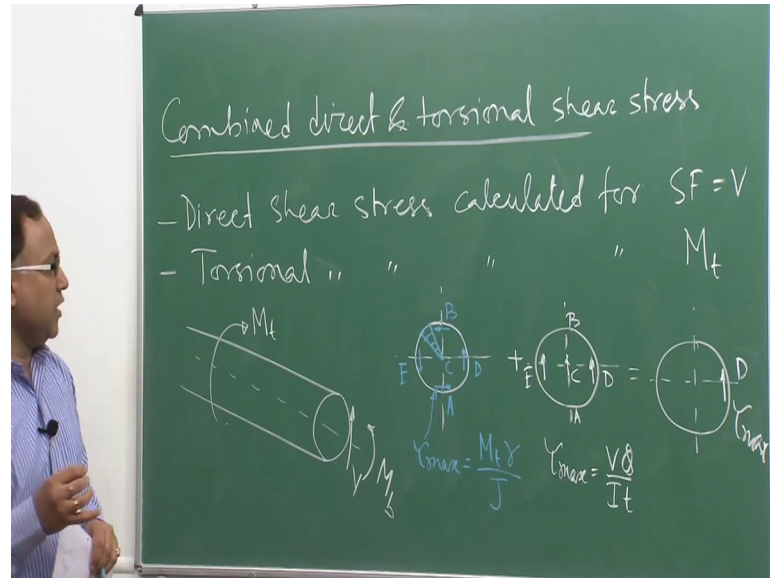 Combined direct & torsional shear stress
- Direct shear stress calculated for SF = V
- Torsional " " " " Mt
Mt
V Mt
B
E C D
A
τmax = Mt r / J
+
B
E C D
A
τmax = VQ / It
=
D
τmax